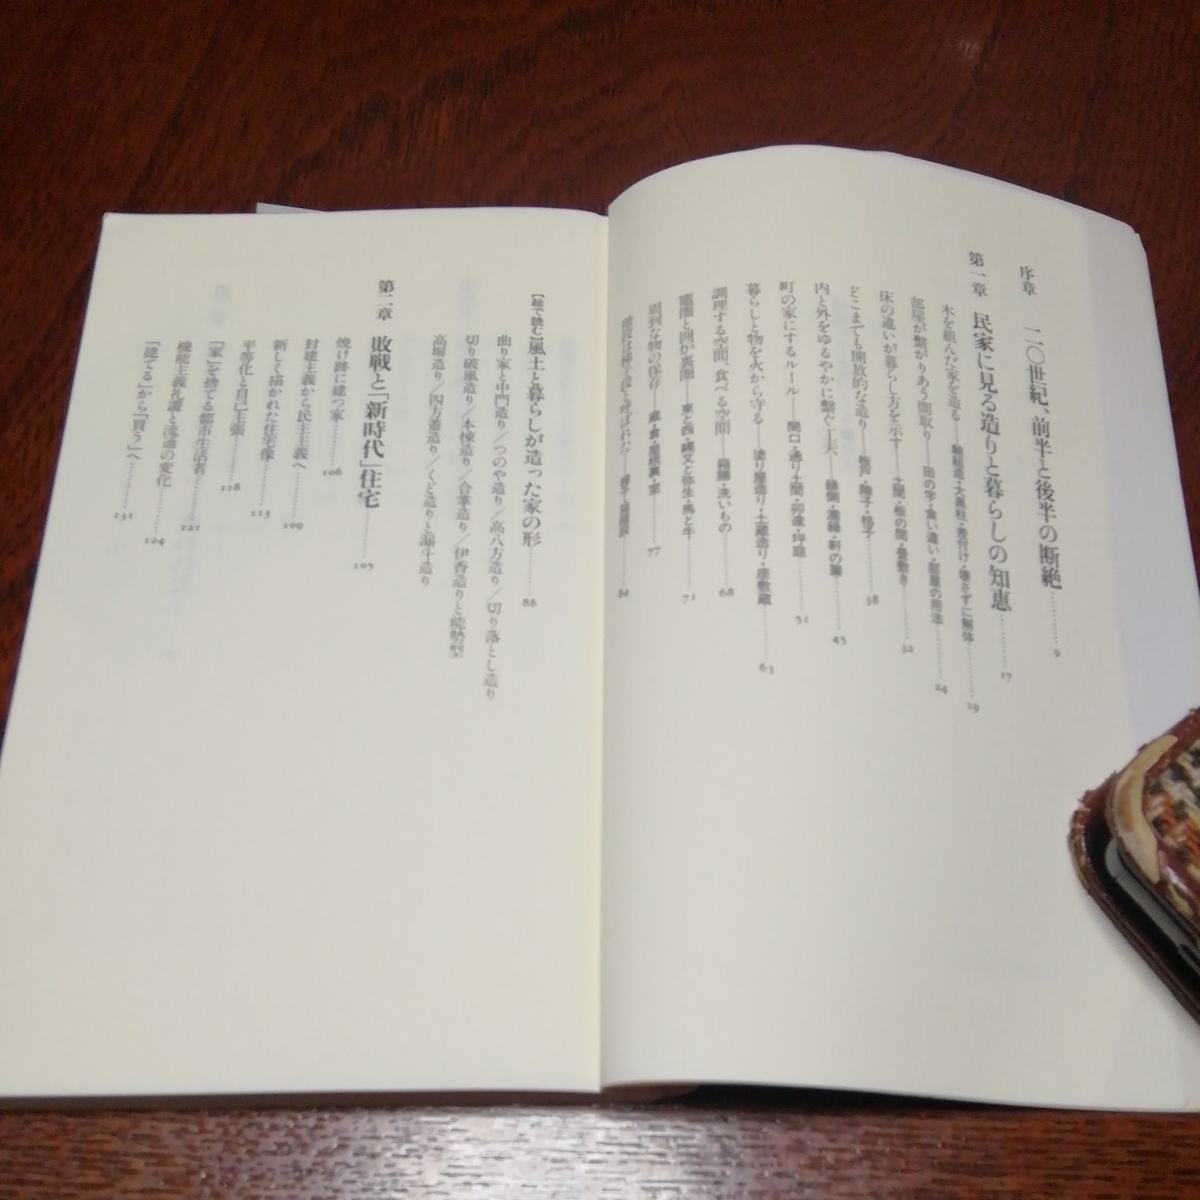 序章　二〇世紀、前半と後半の断絶……9
第一章　民家に見る造りと暮らしの知恵……17
木を組んだ家を造る──軸組造・大黒柱・差付け・壊さずに解体……19
部屋が繋がりあう間取り──田の字・食い違い・部屋の用法……24
床の違いが暮らし方を示す──土間・板の間・畳敷き……32
どこまでも開放的な造り──障子・格子……38
内と外をゆるやかに繋ぐ工夫──縁側・濡縁・軒の扇……45
町の家にするルール──間口・通り土間・卯建・坪庭……51
暮らしと物を火から守る──塗り屋造り・土蔵造り・座敷蔵……63
調理する空間、食べる空間──箱膳・洗いもの……68
竈圏と囲炉裏圏──東と西・縄文と弥生・馬と牛……71
周到な物の保存──蔵・倉・屋根裏・室……77
階段は梯子段と呼ばれた──梯子・箱階段
【絵で読む】風土と暮らしが造った家の形……88
曲り家と中門造り／つのや造り／高八方造り／切り落とし造り
切り破風造り／本棟造り／合掌造り／伊香造りと能勢型
高塀造り／四方蓋造り／くど造りと漏斗造り
第二章　敗戦と「新時代」住宅……105
焼け跡に建つ家……106
封建主義から民主主義へ……109
新しく描かれた住宅像……113
平等化と自己主張……118
「家」を捨てる都市生活者……121
機能主義礼讃と流通の変化……124
「建てる」から「買う」へ……131